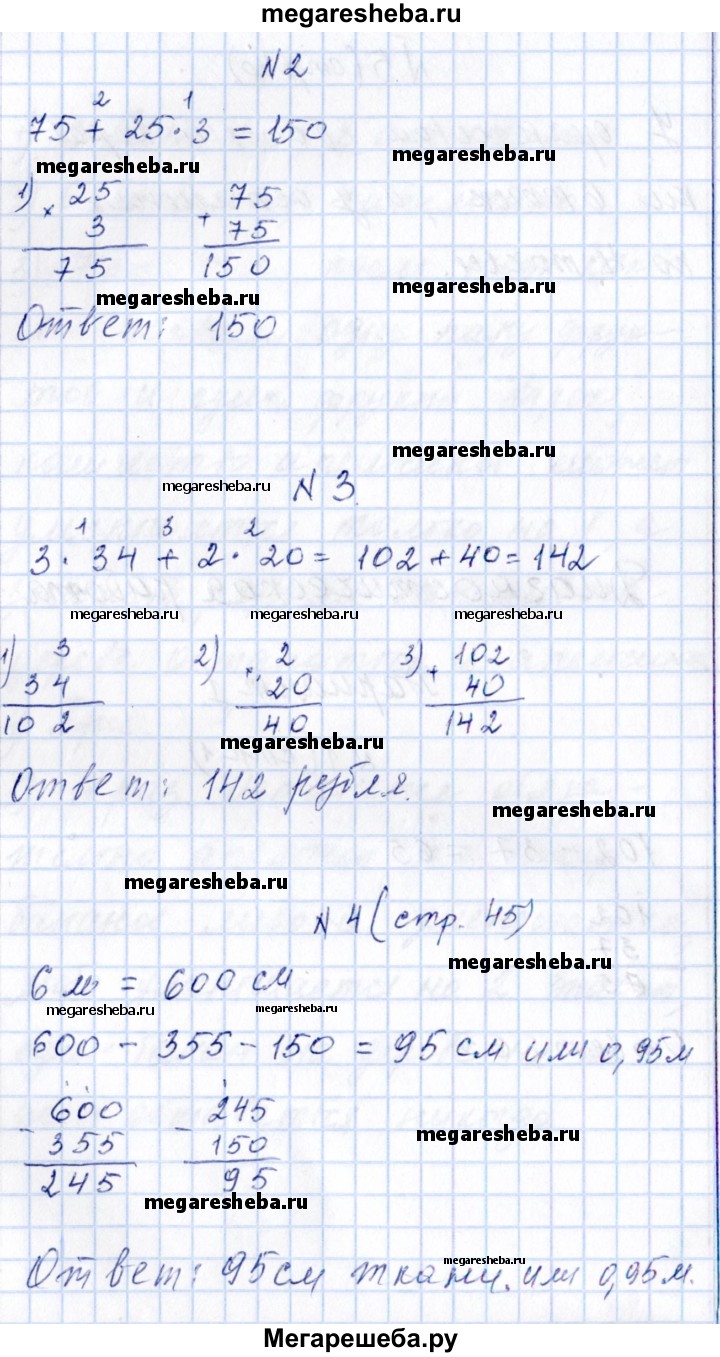 megaresheba.ru
N 2
2 1
75 + 25 · 3 = 150
megaresheba.ru megaresheba.ru
1) × 25 75
3 + 75
75 150
megaresheba.ru megaresheba.ru
Ответ: 150
megaresheba.ru
megaresheba.ru N 3.
1 3 2
3 · 34 + 2 · 20 = 102 + 40 = 142
megaresheba.ru megaresheba.ru megaresheba.ru
1) 3 2) × 2 3) + 102
34 20 40
102 40 142
megaresheba.ru
Ответ: 142 рубля.
megaresheba.ru
megaresheba.ru
N 4 (стр. 45)
megaresheba.ru
6 м = 600 см
megaresheba.ru megaresheba.ru
600 - 355 - 150 = 95 см или 0,95 м
- 600 - 245
355 150
245 95
megaresheba.ru
megaresheba.ru
megaresheba.ru
Ответ: 95 см ткани. или 0,95 м.
Мегарешеба.ру